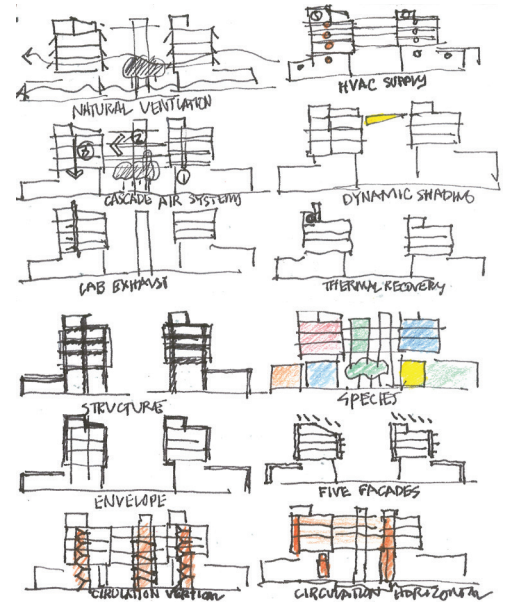 ① ②
HVAC SUPPLY
NATURAL VENTILATION
③ ② ①
CASCADE AIR SYSTEMS
DYNAMIC SHADING
LAB EXHAUST
THERMAL RECOVERY
STRUCTURE
SPECIES
ENVELOPE
FIVE FACADES
CIRULATION VERTICAL
CIRCULATION HORIZONTAL